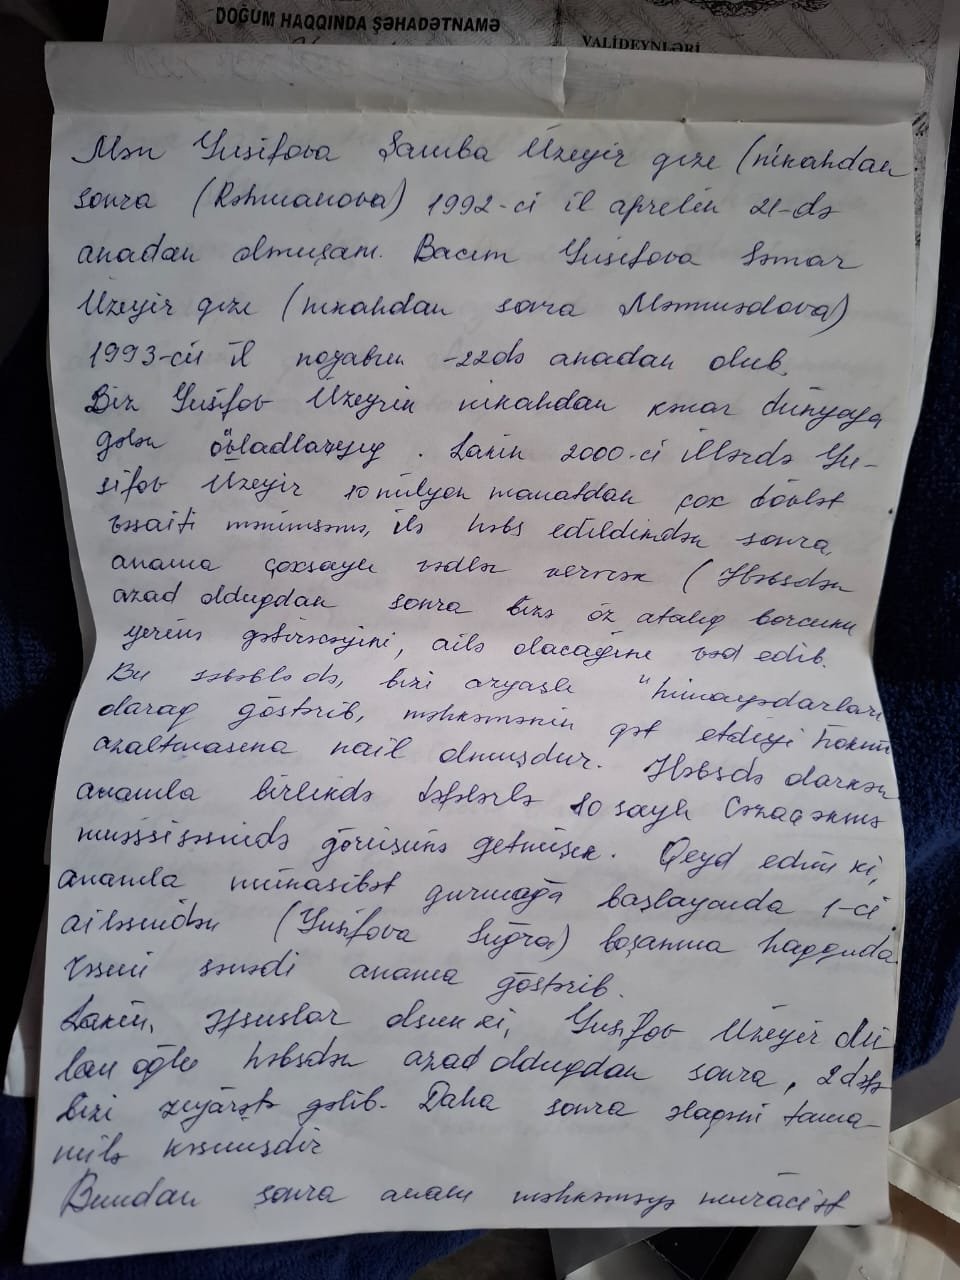 DOĞUM HAQQINDA ŞƏHADƏTNAMƏ
VALİDEYNLƏRİ
Mən Yusifova Samba Üzeyir qızı (nikahdan
sonra (Rəhmanova) 1992-ci il aprelin 21-də
anadan olmuşam. Bacım Yusifova Səmar
Üzeyir qızı (nikahdan sonra Məmmədova)
1993-cü il noyabrın -22də anadan olub.
Biz Yusifov Üzeyrin nikahdan kənar dünyaya
gələn övladlarıyıq. Lakin 2000-ci illərdə Yu-
sifov Üzeyir 10 milyon manatdan çox dövlət
vəsaiti mənimsəmə, ilə həbs edildikdən sonra
anama çoxsaylı vədlər verərək (Həbsdən
azad olduqdan sonra bizə öz atalıq borcunu
yerinə gətirəcəyini, ailə olacağını vəd edib.
Bu səbəblə də, bizi azyaşlı "himayədarları
olaraq göstərib, məhkəmənin qət etdiyi hökmü
azaltmasına nail olmuşdur. Həbsdə olarkən
anamla birlikdə dəfələrlə 10 saylı Cəzaçəkmə
müəssisəsində görüşünə getmişik. Qeyd edim ki,
anamla münasibət qurmağa başlayanda 1-ci
ailəsindən (Yusifova Suğra) boşanma haqqında
rəsmi sənədi anama göstərib.
Lakin, əfsuslar olsun ki, Yusifov Üzeyir
oğlu həbsdən azad olduqdan sonra, 2 dəfə
bizi ziyarətə gəlib. Daha sonra əlaqəni tama-
milə kəsmişdir
Bundan sonra anam məhkəməyə müraciət